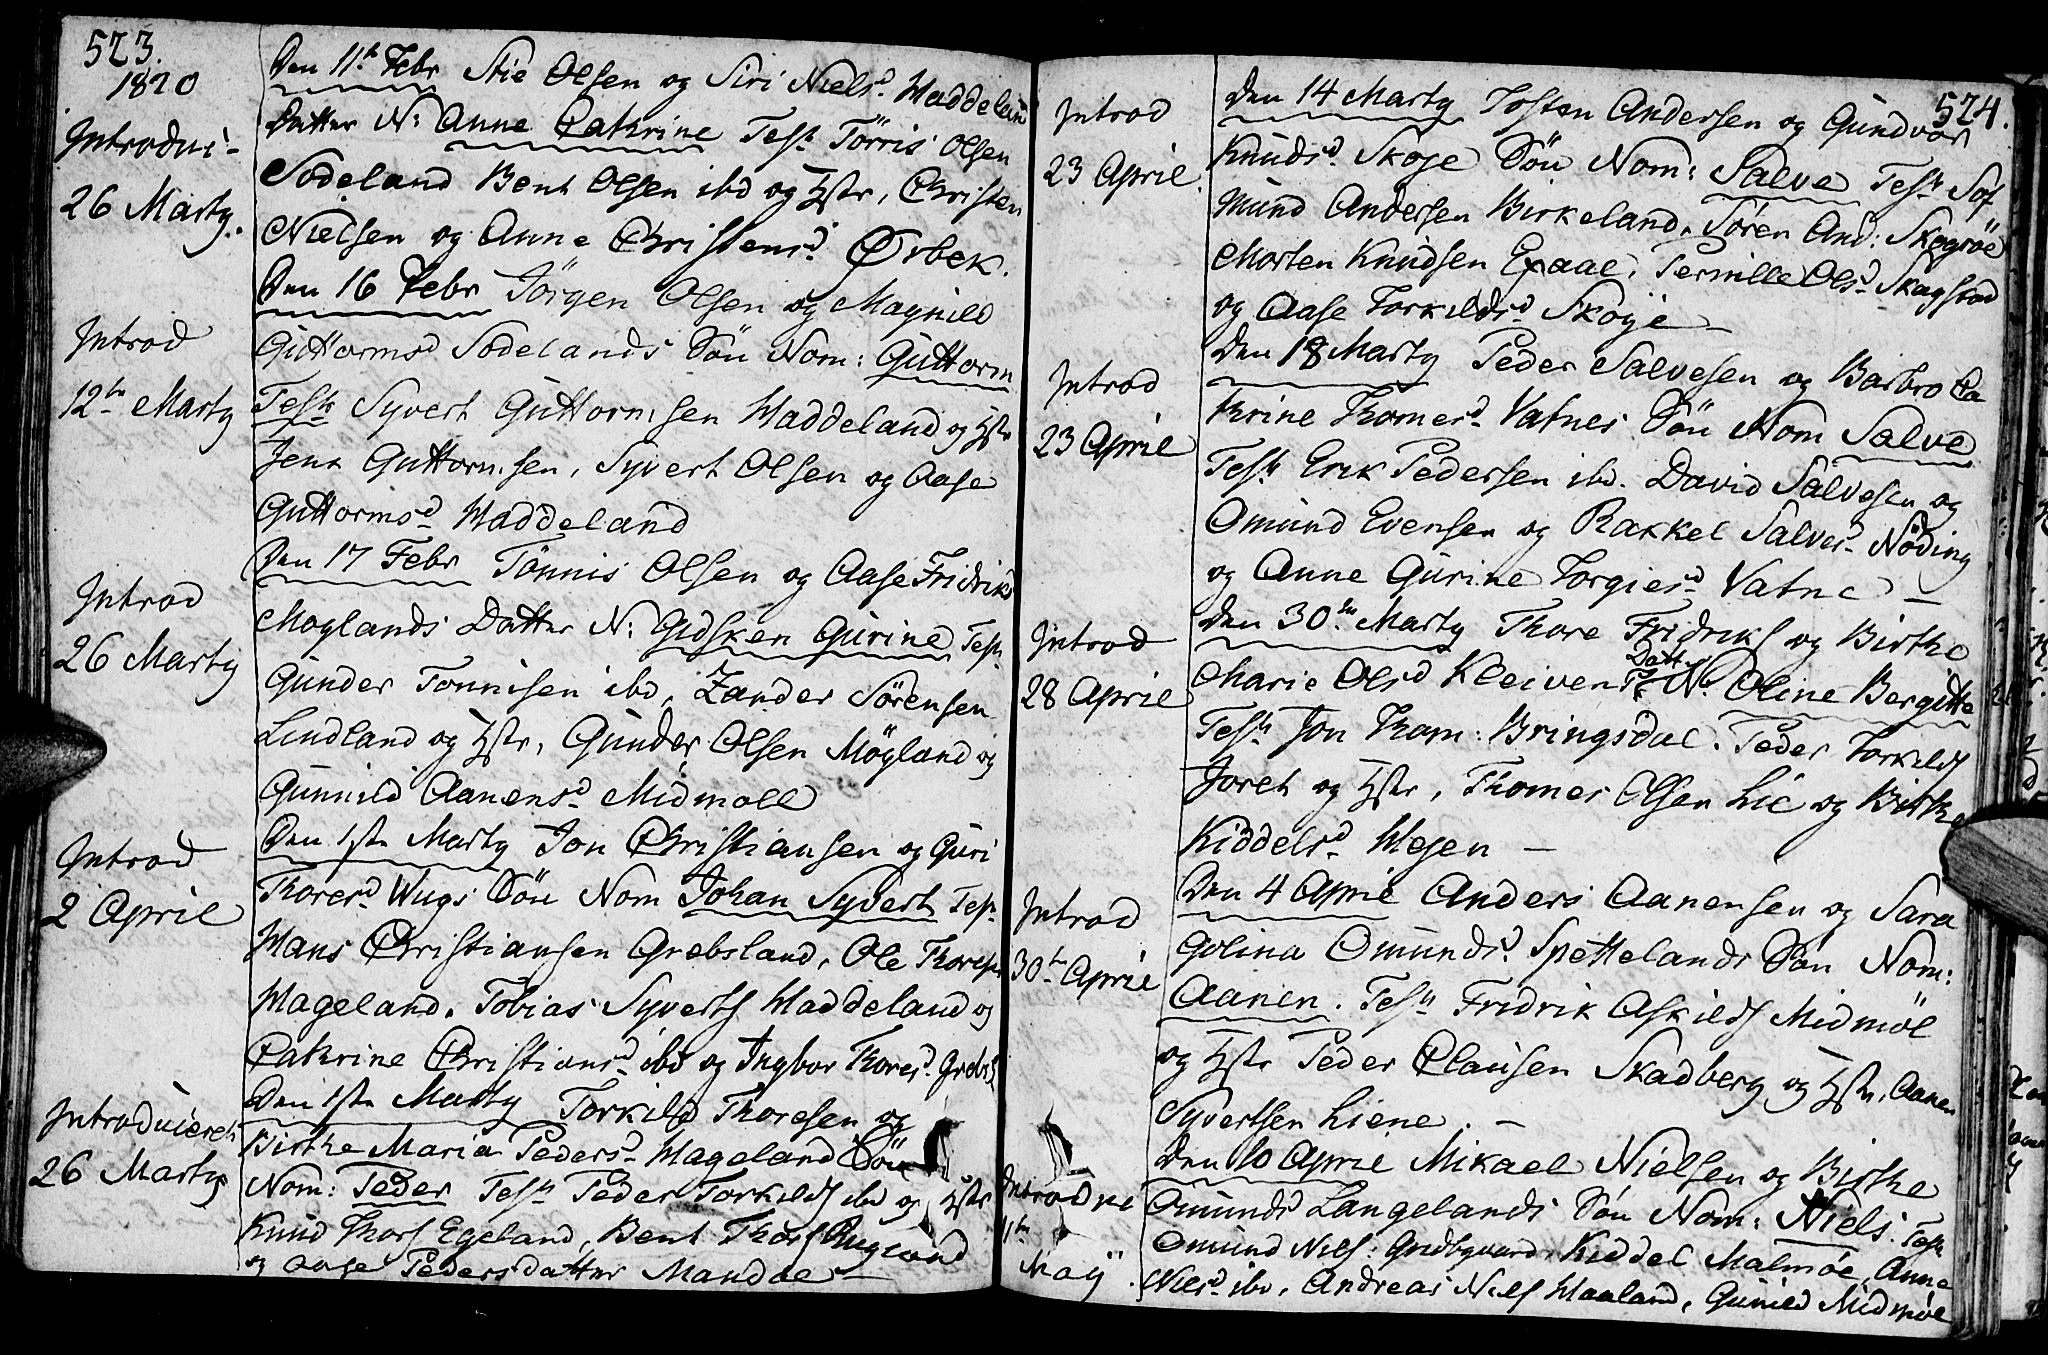 523.
1820
Introdui-
26 Marty.
Den 11te Febr Stie Olsen og Siri Nielsd Haddeland
Datter N: Anne Catrine Test Törris Olsen
Sodeland Bent Olsen ibd og Hstr, Christen
Nielsen og Anne Christensd Örbek.
Introd
12te Marty
Den 16 Febr Jörgen Olsen og Magnild
Guttormsd Sodelands Sön Nom: Guttorm
Test Syvert Guttormsen Haddeland og Hstr
Jens Guttormsen, Syvert Olsen og Aase
Guttormsd Haddeland
Introd
26 Marty
Den 17 Febr Tönnis Olsen og Aase Fridriks
Moglands Datter N: Gidsken Gurine Test
Gunder Tönnisen ibd, Zander Sörensen
Lindland og Hstr, Gunder Olsen Mögland og
Gunnild Aanensd Midmoll
Introd
2 April
Den 1ste Marty Jon Christiansen og Guri
Thoresd Wugs Sön Nom Johan Syvert Test
Hans Christiansen Grebsland, Ole Thores
Hageland. Tobias Syverts Haddeland og
Catrine Christiansd ibd og Ingbor Thoresd Grebs
Introduiceret
26 Marty
Den 1ste Marty Torkild Thoresen og
Birthe Maria Pedersd Hageland Sön
Nom: Peder Test Peder Torkilds ibd og Hstr
Knud Thors Egeland, Bent Thors Rugland
og Aase Pedersdatter Mandae
524.
Introd
23 April.
Den 14 Marty Tosten Andersen og Gundvor
Knudsd Skoje Sön Nom: Salve Test Sos
mund Andersen Birkeland, Sören And: Skogsöe
Morten Knudsen Epaae, Pernille Olsd Skagstad
og Aase Torkildsd Skoye
Introd
23 April
Den 18 Marty Peder Salvesen og Barbro Ca
thrine Thomesd Vatnes Sön Nom Salve
Test Erik Pedersen ibd. David Salvesen og
Omund Evensen og Rakkel Salvesd Nöding
og Anne Gurine Torgiesd Vatne
Introd
28 April
Den 30te Marty Thore Fridriks og Birthe
Marie Olsd Kleivens Datt N: Oline Bergitte
Test Jon Thom: Bringsdal. Peder Torkilds
Joreh og Hstr, Thomes Olsen Lie og Birthe
Kiddelsd Hesen
Introd
30te Aprie
Den 4 Aprie Anders Aanensen og Sara
Golina Omundsd Spettelands Sön Nom:
Aanen. Test Fridrik Askilds Midmöl
og Hstr Peder Clausen Skadberg og Hstr, Aanen
Syvertsen Liene.
Introdue
11te
May.
Den 10 Aprie Mikael Nielsen og Birthe
Omundsd Langelands Sön Nom: Niels. Test
Omund Niels: Gridbgaard, Kiddel Malmöe, Anne
Nielsd ibd, Andreas Niels Haaland, Gunild Midmöe